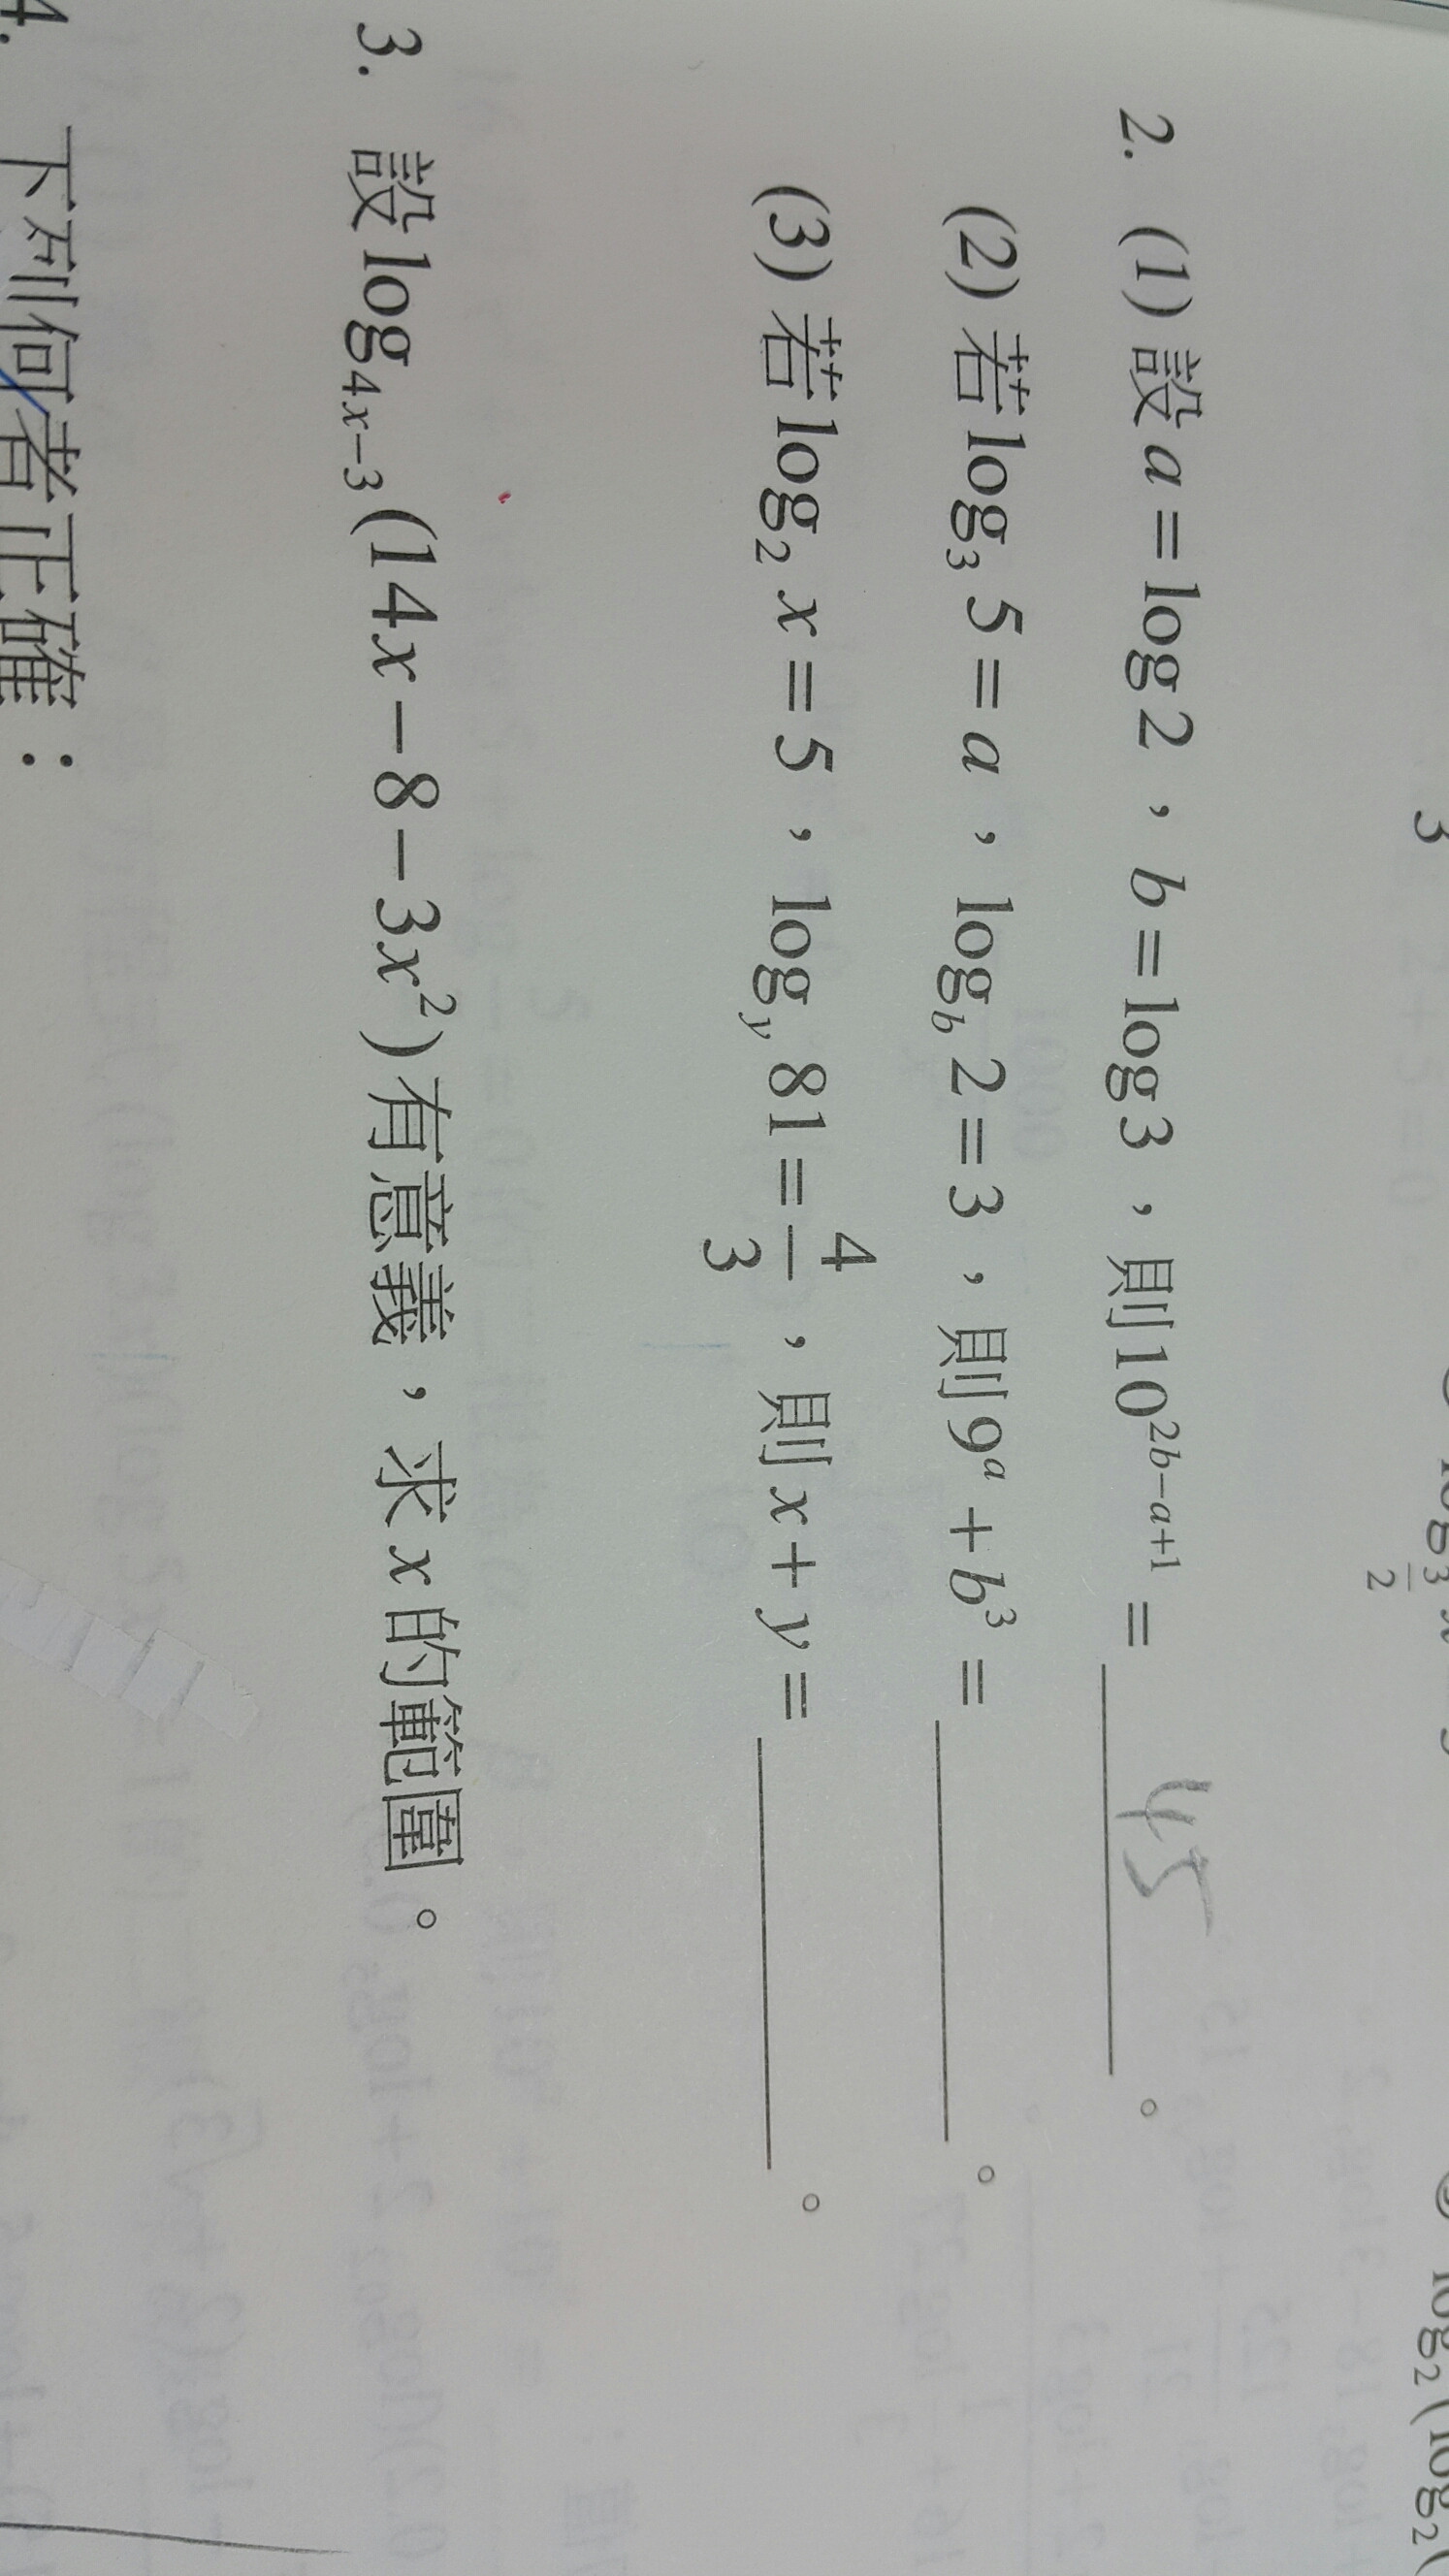 2. (1) 設 a = log 2 , b = log 3 , 則 10^{2b-a+1} = 45 。
(2) 若 log_3 5 = a , log_b 2 = 3 , 則 9^a + b^3 = ______ 。
(3) 若 log_2 x = 5 , log_y 81 = 4/3 , 則 x + y = ______ 。
3. 設 log_{4x-3}(14x - 8 - 3x^2) 有意義 , 求 x 的範圍 。
4. 下列何者正確 :